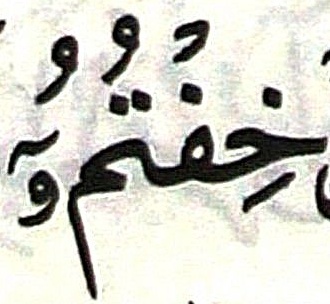 خِفْتُمُۥٓ